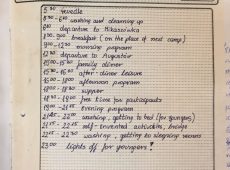 5³⁰ reveille
5³⁰-6¹⁰ washing and cleaning up
6¹⁰ departure to Mikaszówka
8³⁰-9⁰⁰ breakfast (on the place of next camp)
9⁰⁰-12³⁰ morning program
12³⁰ departure to Augustów
15⁰⁰-15³⁰ family dinner
15³⁰-16⁰⁰ after-diner leisure
16⁰⁰-18⁰⁰ afternoon program
18⁰⁰-18³⁰ supper
18³⁰-19⁰⁰ free time for participants
19⁰⁰-21⁴⁵ evening program
21⁴⁵-22⁰⁰ washing, getting to bed (for youngers)
21⁴⁵-22¹⁵ self-invented activities, bridge
22¹⁵-22³⁰ washing, getting to sleeping rooms
23⁰⁰ lights off for youngers!